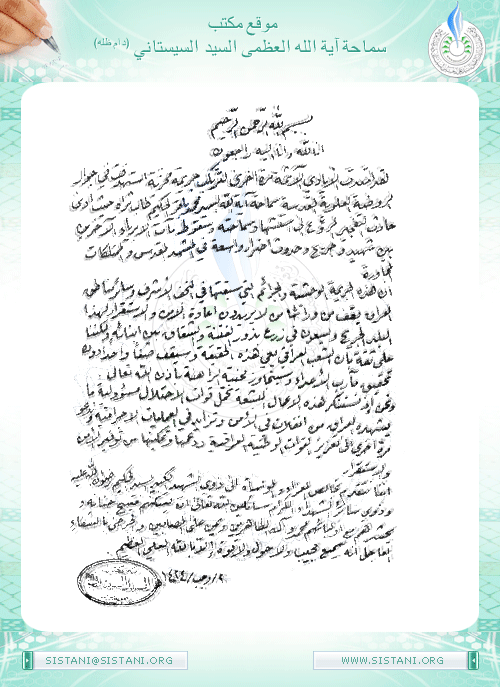 موقع مكتب
سماحة آية الله العظمى السيد السيستاني (دام ظله)
بسم الله الرحمن الرحيم
انا لله وانا اليه راجعون
لقد امتدت الأيادي الآثمة مرة اخرى لترتكب جريمة مخزية استهدفت في جوار
الروضة العلوية المقدسة سماحة آية الله السيد محمد باقر الحكيم طاب ثراه حيث ادى
حادث التفجير المروع الى استشهاد سماحته وسقوط مئات الابرياء الآخرين
بين شهيد وجريح وحدوث اضرار واسعة في المشهد المقدس والممتلكات
المجاورة
ان هذه الجريمة الوحشية والجرائم التي سبقتها في النجف الأشرف وسائر مناطق
العراق يقف من ورائها من لا يريدون اعادة الأمن والاستقرار لهذا
البلد الجريح ويسعون في زرع بذور الفتنة والشقاق بين ابنائه ولكننا
على ثقة بأن الشعب العراقي يعي هذه الحقيقة وسيقف صفاً واحداً دون
تحقيق مآرب الأعداء وسيتجاوز محنته الراهنة بإذن الله تعالى
ونحن إذ نستنكر هذه الاعمال البشعة نحمل قوات الاحتلال مسؤولية ما
يشهده العراق من انفلات في الأمن وتزايد في العمليات الاجرامية وندعو
مرة أخرى الى تعزيز القوات الوطنية العراقية ودعمها وتمكينها من توفير الأمن
والاستقرار
اننا نتقدم بخالص العزاء والمواساة الى ذوي الشهيد السعيد السيد الحكيم رضوان الله عليه
وذوي سائر الشهداء الكرام سائلين الله تعالى ان يسكنهم فسيح جنانه و
يحشرهم مع اوليائهم محمد وآله الطاهرين ويمن على المصابين والجرحى بالشفاء
العاجل انه سميع مجيب ولا حول ولا قوة الا بالله العلي العظيم
رجب/١٤٢٤
SISTANI@SISTANI.ORG
WWW.SISTANI.ORG